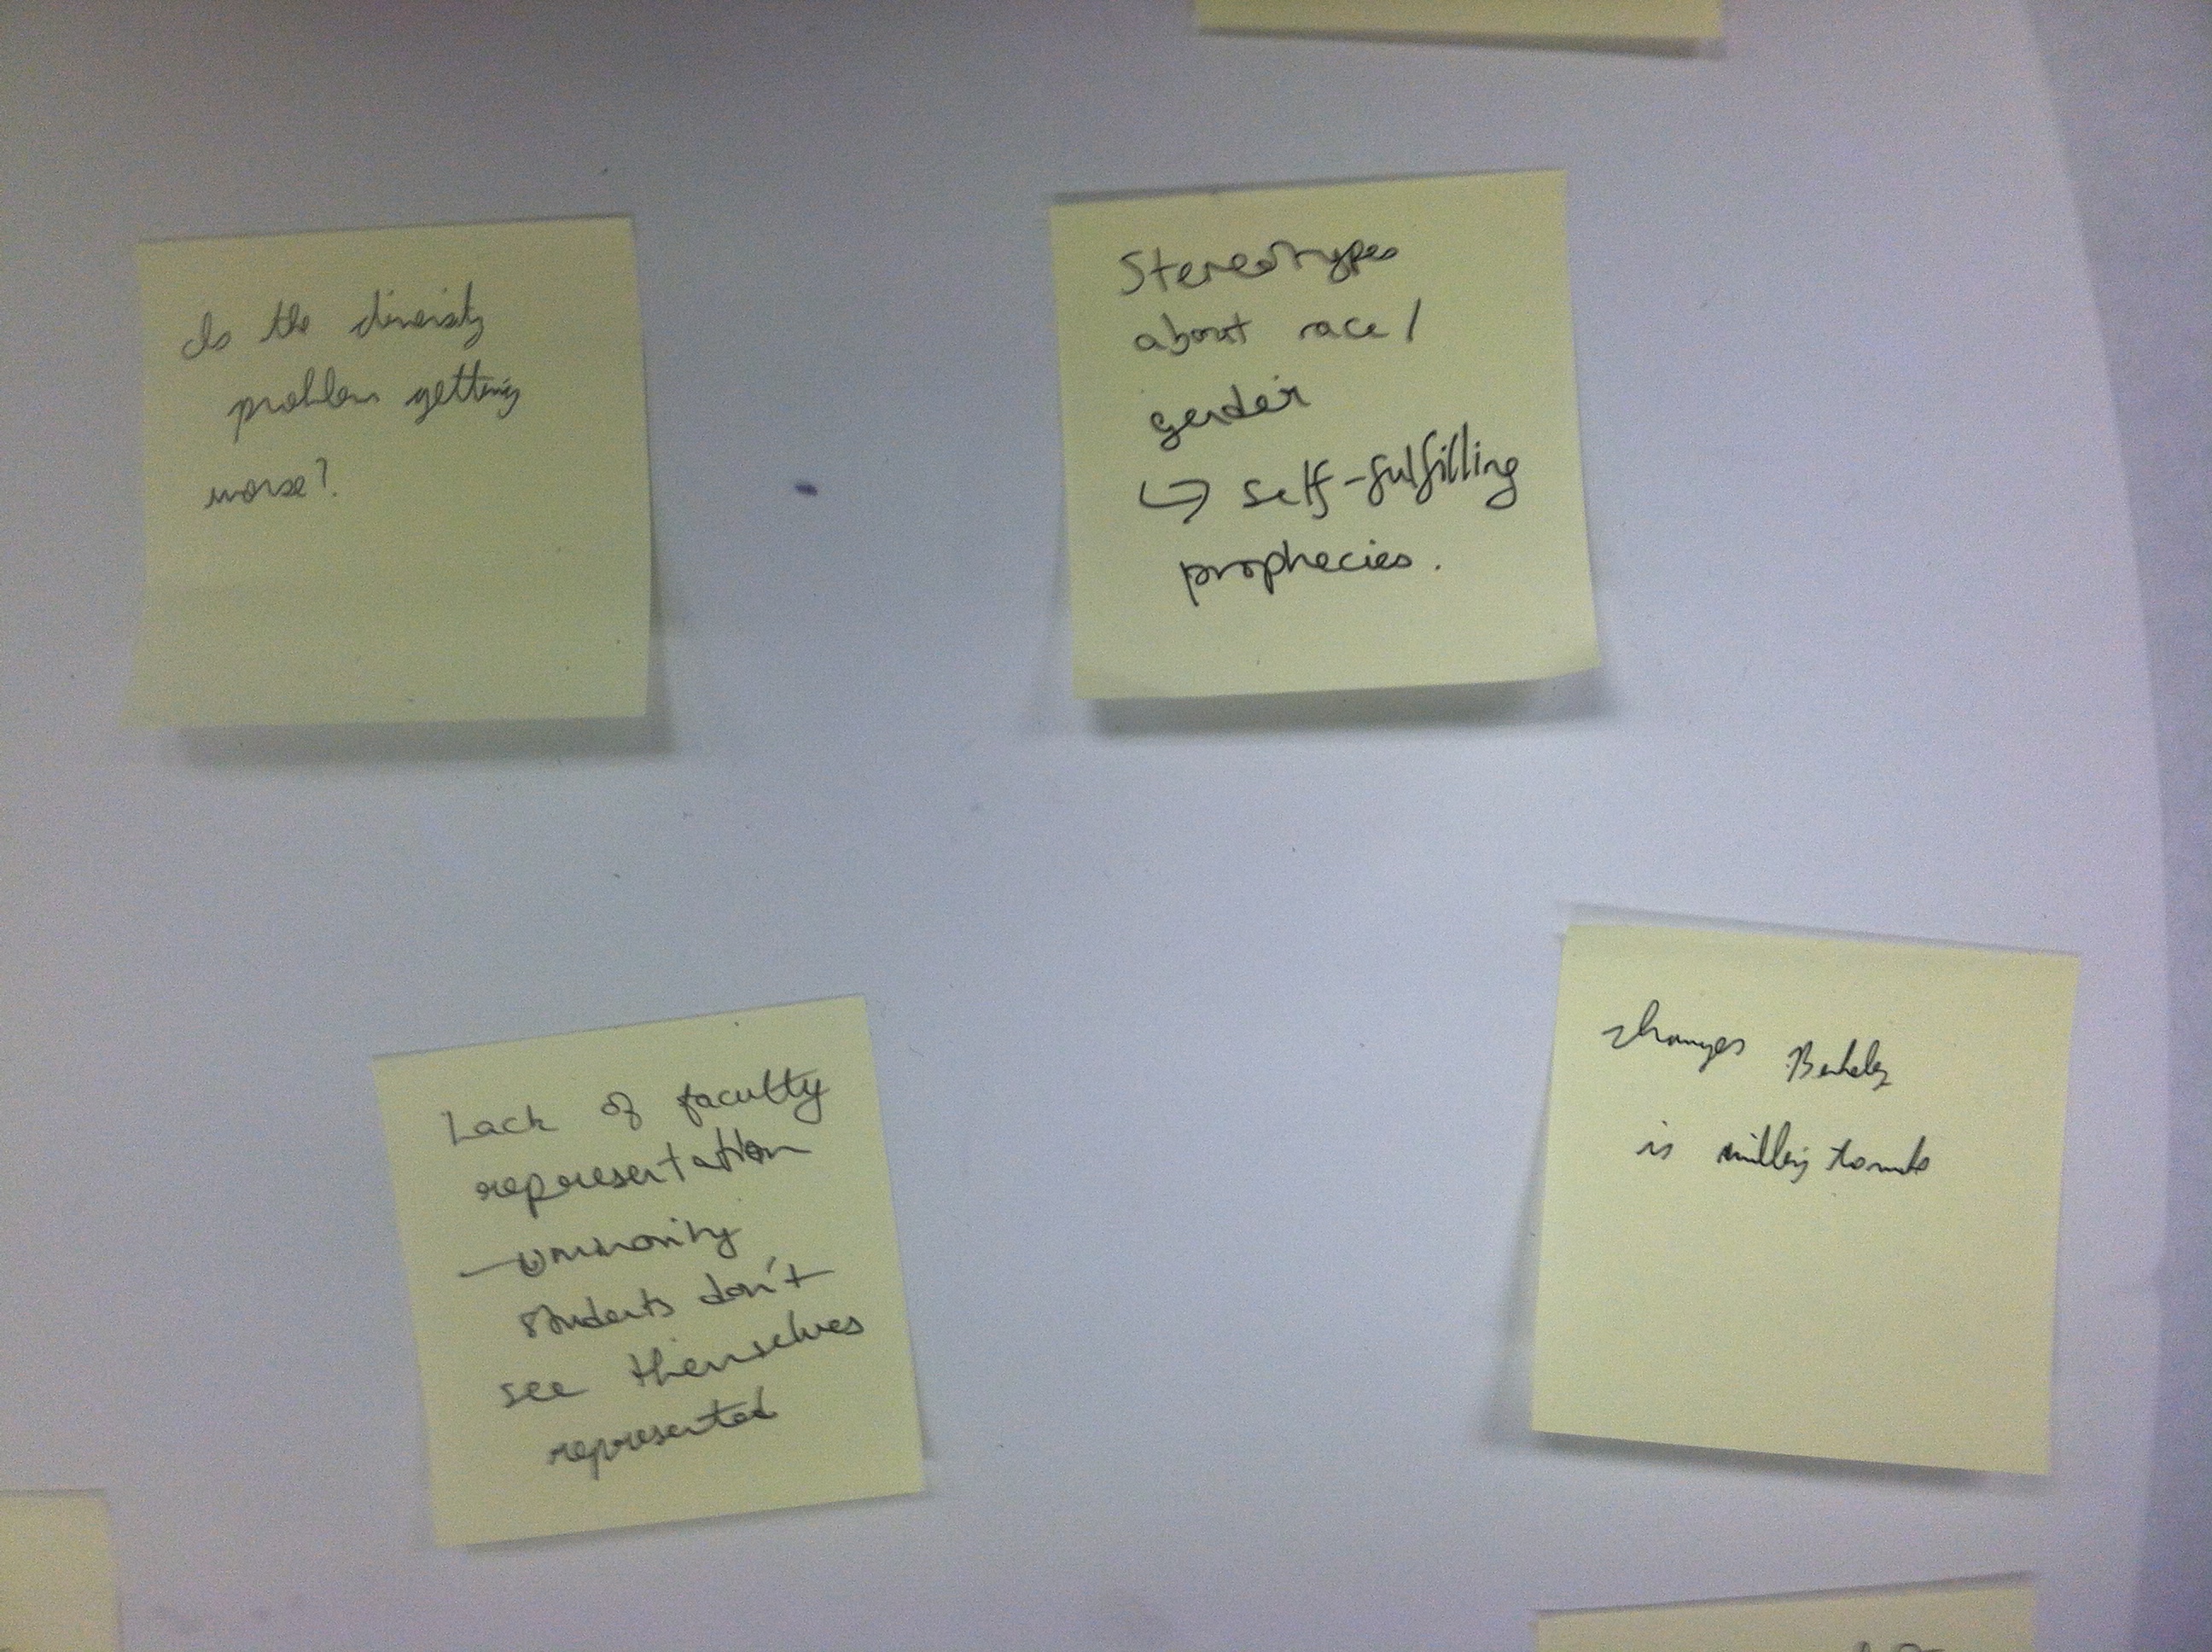 Is the diversity
problem getting
worse?
Stereotypes
about race /
gender
↳ self-fulfilling
prophecies.
Lack of faculty
representation
— minority
students don't
see themselves
represented
changes Berkeley
is willing to make